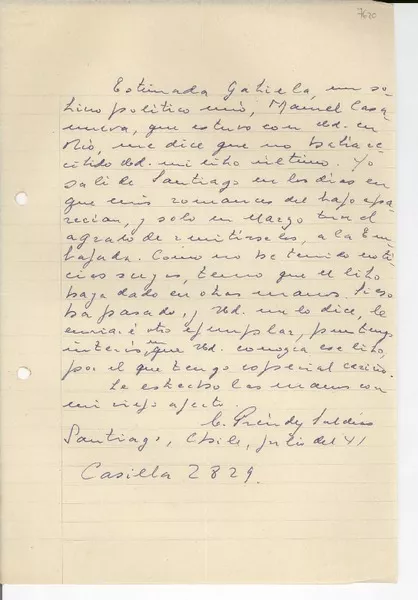 7620
Estimada Gabriela, un so-
brino político mío, Manuel Casa
nueva, que estuvo con Ud. en
Río, me dice que no había re-
cibido Ud. mi libro último. Yo
salí de Santiago en los días en
que mis romances del bajo apa-
recían, y solo en Marzo tuve el
agrado de remitírselo, a la Em-
bajada. Como no he tenido noti-
cias suyas, temo que el libro
haya dado en otras manos. Si eso
ha pasado, y Ud. me lo dice, le
enviaré otro ejemplar, pues tengo
interés en que Ud. conozca ese libro,
por el que tengo especial cariño.
Le estrecho las manos con
mi viejo afecto.
C. Préndez Saldías
Santiago, Chile, julio del 41
Casilla 2829.